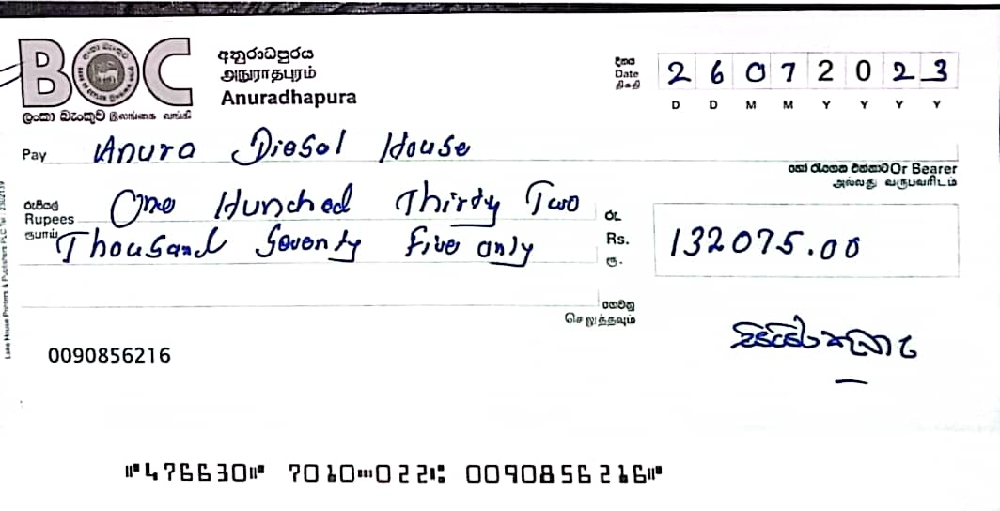 BOC
ලංකා බැංකුව இலங்கை வங்கி
අනුරාධපුරය
அநுராதபுரம்
Anuradhapura
දිනය
Date
திகதி
2 6 0 7 2 0 2 3
D D M M Y Y Y Y
Pay Anura Diesel House
හෝ රැගෙන එන්නාට Or Bearer
அல்லது வருபவரிடம்
රුපියල්
Rupees One Hundred Thirty Two
ரூபாய் Thousand Seventy Five only
රු.
Rs. 132075.00
ரூ.
ගෙවනු
செலுத்தவும்
0090856216
⑈476630⑈ 7010⑉022⑆ 0090856216⑈